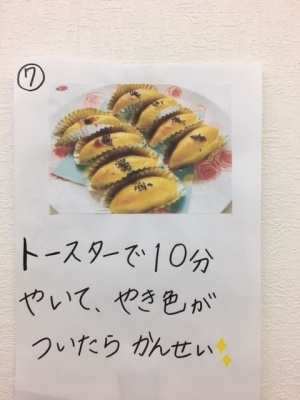 ⑦
トースターで10分
やいて、やき色が
ついたら かんせい✨